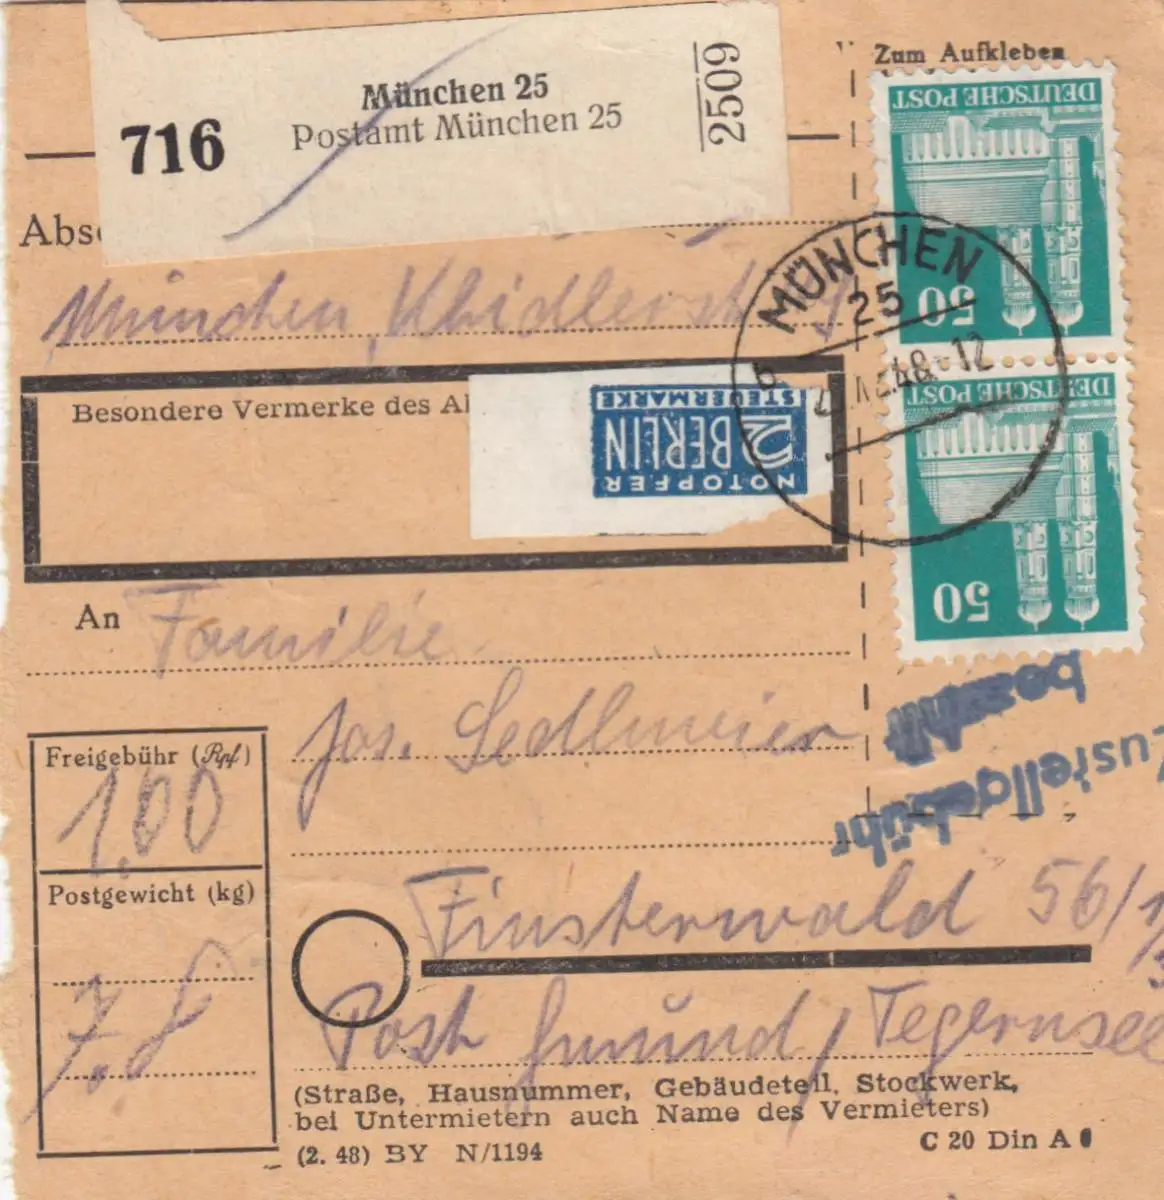 München 25
Postamt München 25
716
2509
Zum Aufkleben
DEUTSCHE POST
50
Abs
München,
MÜNCHEN
25
b
48-12
Besondere Vermerke des Ab
NOTOPFER
2 BERLIN
STEUERMARKE
DEUTSCHE POST
50
An Familie
Jos. Sedlmeier
Zustellgebühr
bezahlt
Freigebühr (Rpf)
1,00
Postgewicht (kg)
Finsterwald 56/1
Post Gmünd / Tegernsee
(Straße, Hausnummer, Gebäudeteil, Stockwerk,
bei Untermietern auch Name des Vermieters)
(2. 48) BY N/1194
C 20 Din A